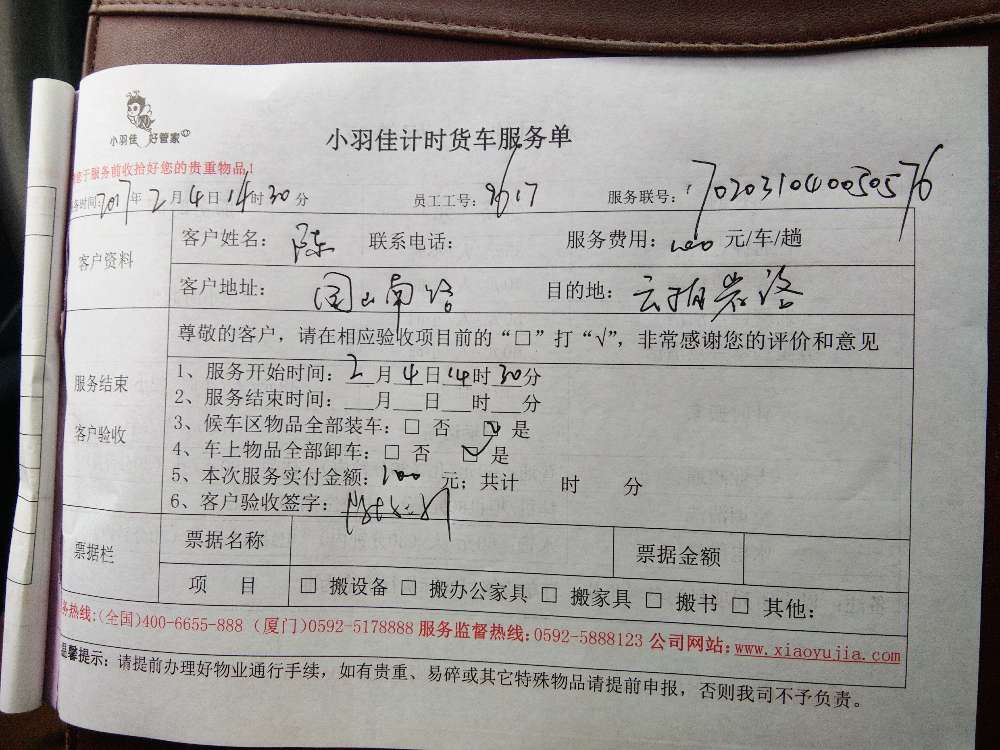 小羽佳 好管家
小羽佳计时货车服务单
于服务前收拾好您的贵重物品！
务时间：2017年2月4日14时30分 员工工号：9617 服务联号：702031040050576
客户资料
客户姓名：陈 联系电话： 服务费用：100元/车/趟
客户地址：园山南路 目的地：云顶岩路
尊敬的客户，请在相应验收项目前的“□”打“√”，非常感谢您的评价和意见
服务结束
客户验收
1、服务开始时间：2月4日14时30分
2、服务结束时间：___月___日___时___分
3、候车区物品全部装车：□ 否 ☑ 是
4、车上物品全部卸车：□ 否 ☑ 是
5、本次服务实付金额：100元；共计 时 分
6、客户验收签字：
票据栏
票据名称 票据金额
项 目 □ 搬设备 □ 搬办公家具 □ 搬家具 □ 搬书 □ 其他：
务热线:(全国)400-6655-888 (厦门)0592-5178888 服务监督热线:0592-5888123 公司网站:www.xiaoyujia.com
温馨提示：请提前办理好物业通行手续，如有贵重、易碎或其它特殊物品请提前申报，否则我司不予负责。